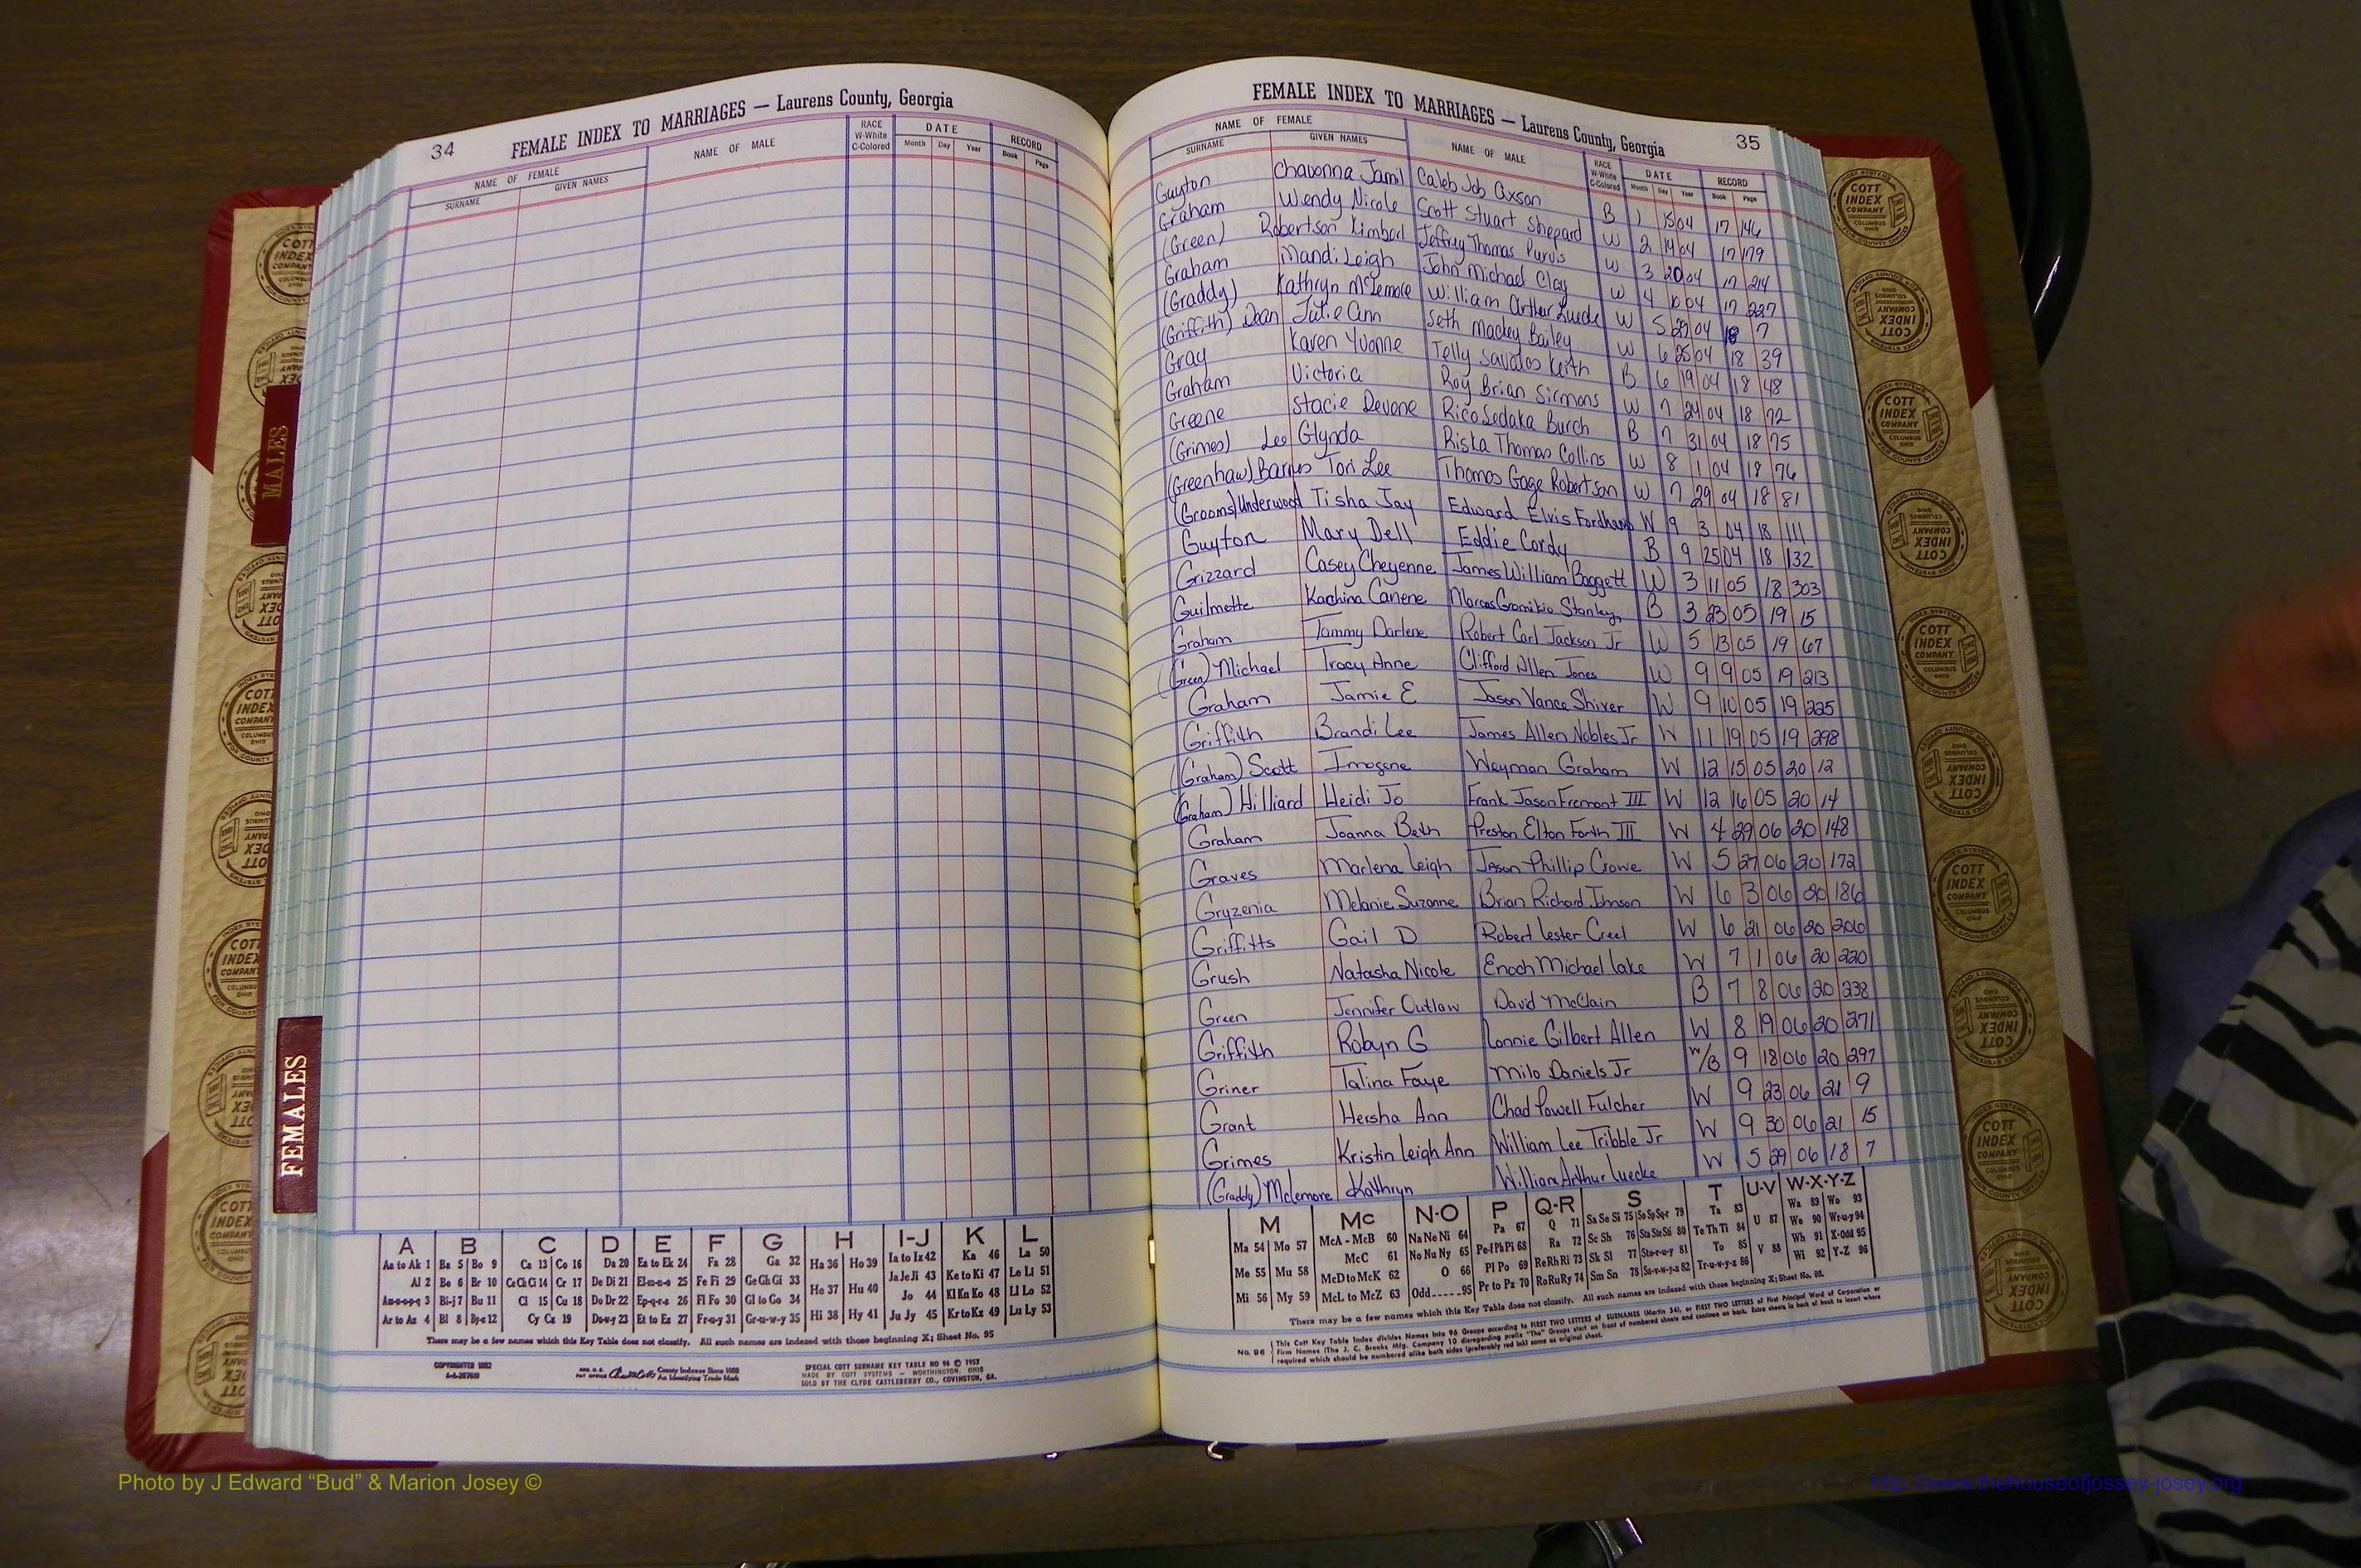 34 FEMALE INDEX TO MARRIAGES — Laurens County, Georgia
NAME OF FEMALE NAME OF MALE RACE W-White C-Colored DATE RECORD
SURNAME GIVEN NAMES Month Day Year Book Page
FEMALE INDEX TO MARRIAGES — Laurens County, Georgia 35
NAME OF FEMALE NAME OF MALE RACE W-White C-Colored DATE RECORD
SURNAME GIVEN NAMES Month Day Year Book Page
Guyton Chavonna Jamil Caleb Job Axson B 1 15 04 17 146
Graham Wendy Nicole Scott Stuart Shepard W 2 14 04 17 179
(Green) Robertson Jeffrey Thomas Purvis W 3 20 04 17 214
Graham Mandi Leigh John Michael Clay W 4 10 04 17 227
(Graddy) Kathryn McLemore William Arthur Luecke W 5 29 04 18 7
(Griffith) Dean Julie Ann Seth Mackey Bailey W 6 25 04 18 39
Gray Karen Yvonne Telly Savalos Keith B 6 19 04 18 48
Graham Victoria Roy Brian Sirmons W 7 24 04 18 72
Greene Stacie Devone Rico Sedaka Burch B 7 31 04 18 75
(Grimes) Lee Glynda Riska Thomas Collins W 8 1 04 18 76
(Greenhaw) Barnes Tori Lee Thomas Gage Robertson W 7 29 04 18 81
(Grooms) Underwood Tisha Jay Edward Elvis Fordham W 9 3 04 18 111
Guyton Mary Dell Eddie Cordy B 9 25 04 18 132
Grizzard Casey Cheyenne James William Baggett W 3 11 05 18 303
Guilmette Kachina Canene Stanley B 3 23 05 19 15
Graham Tammy Darlene Robert Carl Jackson Jr W 5 13 05 19 67
(Green) Michael Tracy Anne Clifford Allen Jones W 9 9 05 19 213
Graham Jamie E Jason Vance Shiver W 9 10 05 19 225
Griffith Brandi Lee James Allen Nobles Jr W 11 19 05 19 298
(Graham) Scott Imogene Wayman Graham W 12 15 05 20 12
(Graham) Hilliard Heidi Jo Frank Jason Fremont III W 12 16 05 20 14
Graham Joanna Beth Preston Elton Forth III W 4 29 06 20 148
Graves Marlena Leigh Jason Phillip Crowe W 5 27 06 20 172
Gryzenia Melanie Suzanne Brian Richard Johnson W 6 3 06 20 186
Griffitts Gail D Robert Lester Creel W 6 21 06 20 206
Grush Natasha Nicole Enoch Michael Lake W 7 1 06 20 220
Green Jennifer Outlaw David McClain B 7 8 06 20 238
Griffith Robyn G Lonnie Gilbert Allen W 8 19 06 20 271
Griner Talina Faye Milo Daniels Jr W/B 9 18 06 20 297
Grant Hersha Ann Chad Powell Fulcher W 9 23 06 21 9
Grimes Kristin Leigh Ann William Lee Tribble Jr W 9 30 06 21 15
(Graddy) Mclemore Kathryn William Arthur Luecke W 5 29 06 18 7
A B C D E F G H I-J K L
Aa to Ak 1 Ba 5 Bo 9 Ca 13 Co 16 Da 20 Ea to Ek 24 Fa 28 Ga 32 Ha 36 Ho 39 Ia to Iz 42 Ka 46 La 50
Al 2 Be 6 Br 10 Ce Ch Ci 14 Cr 17 De Di 21 El-m-n-o 25 Fe Fi 29 Ge Gh Gi 33 He 37 Hu 40 Ja Je Ji 43 Ke to Ki 47 Le Li 51
Am-n-o-p-q 3 Bi-j 7 Bu 11 Cl 15 Cu 18 Do Dr 22 Ep-q-r-s 26 Fl Fo 30 Gl to Go 34 Hi 38 Hy 41 Jo 44 Kl Kn Ko 48 Ll Lo 52
Ar to Az 4 Bl 8 By-z 12 Cy Cz 19 Du-w-y 23 Et to Ez 27 Fr-u-y 31 Gr-u-w-y 35 Ju Jy 45 Kr to Kz 49 Lu Ly 53
There may be a few names which this Key Table does not classify. All such names are indexed with those beginning X; Sheet No. 95
SPECIAL COTT SURNAME KEY TABLE NO 96 © 1957
MADE BY COTT SYSTEMS — WORTHINGTON, OHIO
SOLD BY THE CLYDE CASTLEBERRY CO., COVINGTON, GA.
M Mc N-O P Q-R S T U-V W-X-Y-Z
Ma 54 Mo 57 McA - McB 60 Na Ne Ni 64 Pa 67 Q 71 Sa Se Si 75 Ta 83 U 87 Wa 89 Wo 93
Me 55 Mu 58 McC 61 No Nu Ny 65 Pe-f Ph Pi 68 Ra 72 Sc Sh 76 Te Th Ti 84 V 88 We 90 Wr-u-y 94
Mi 56 My 59 McD to McK 62 O 66 Pl Po 69 Re Rh Ri 73 Sk Sl 77 Sto-r-u-y 81 To 85 Wh 91 X-odd 95
McL to McZ 63 Odd 95 Pr to Pz 70 Ro Ru Ry 74 Sm Sn 78 Su-v-w-y-z 82 Tr-u-w-y-z 86 Wi 92 Y-Z 96
There may be a few names which this Key Table does not classify. All such names are indexed with those beginning X; Sheet No. 95.
MALES
FEMALES
COTT INDEX COMPANY
COLUMBUS OHIO
INDEX SYSTEMS FOR COUNTY OFFICES
Photo by J Edward “Bud” & Marion Josey ©
http://www.thehouseofjossey-josey.org